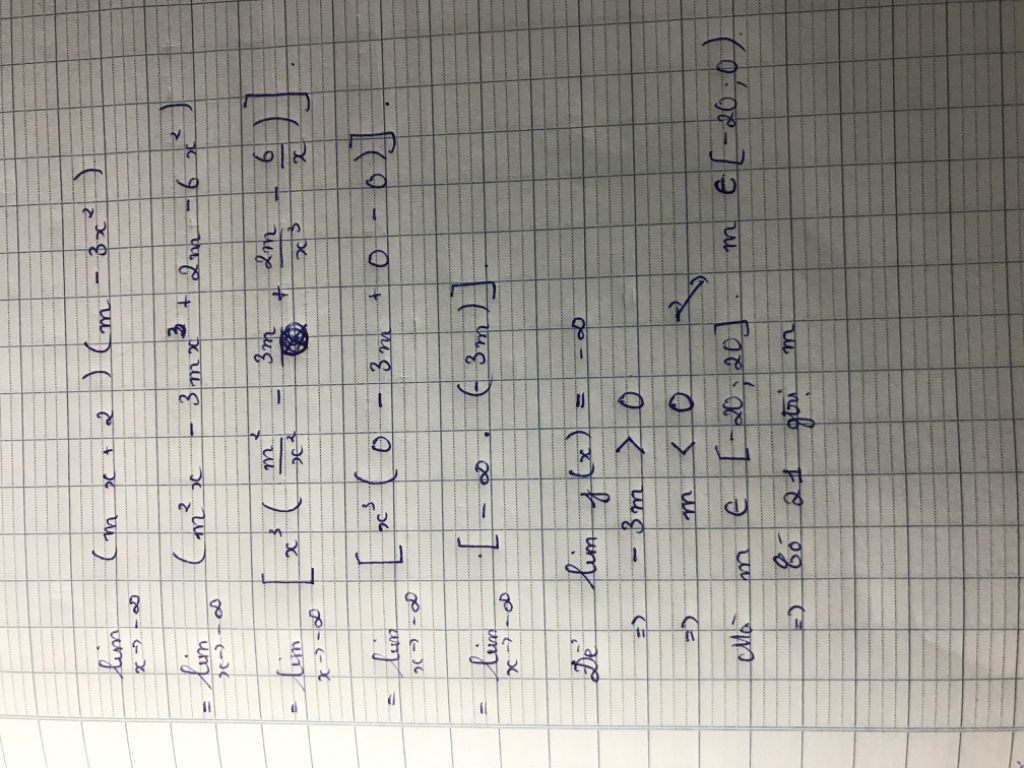 lim x→-∞ (m x + 2) (m - 3x²)
= lim x→-∞ (m²x - 3mx³ + 2m - 6x²)
= lim x→-∞ [x³ (m²/x² - 3m + 2m/x³ - 6/x)].
= lim x→-∞ [x³ (0 - 3m + 0 - 0)].
= lim x→-∞ [-∞ . (-3m)].
Để lim f(x) = -∞
=> -3m > 0
=> m < 0
Mà m ∈ [-20; 20]. m ∈ [-20; 0).
=> Có 21 gtrị m